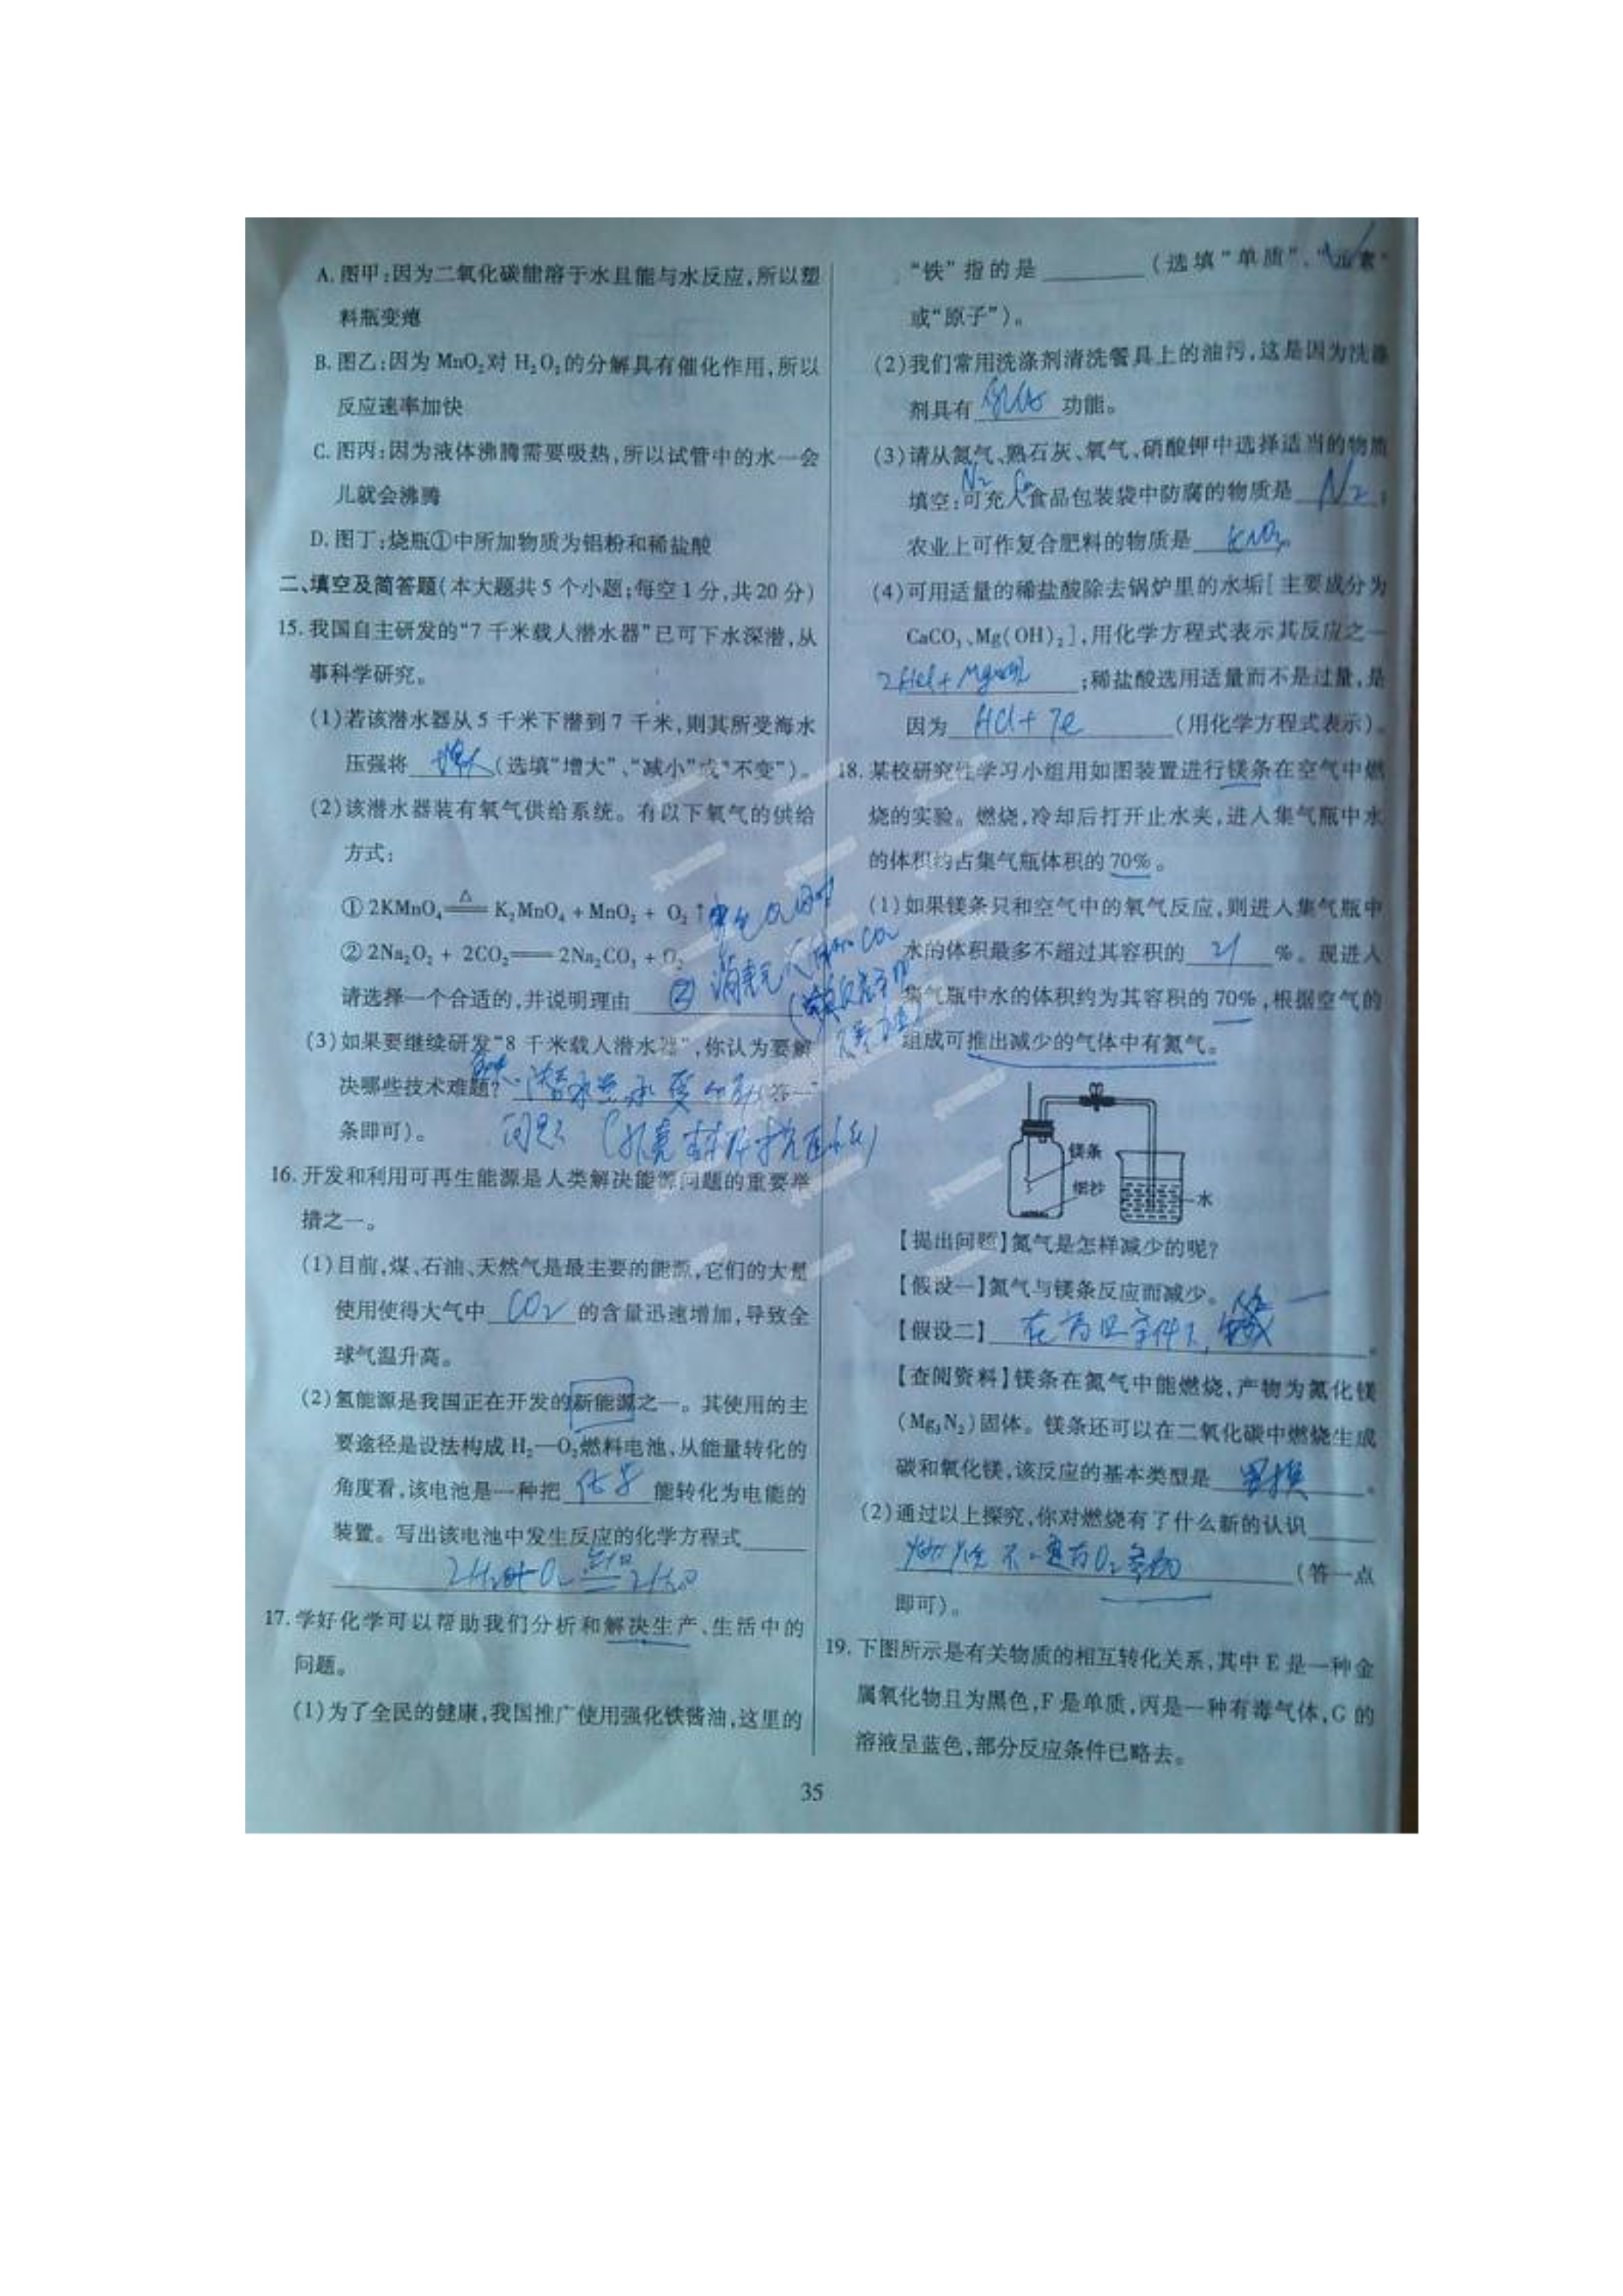 A. 图甲:因为二氧化碳能溶于水且能与水反应,所以塑
料瓶变瘪
B. 图乙:因为 MnO₂对 H₂O₂的分解具有催化作用,所以
反应速率加快
C. 图丙:因为液体沸腾需要吸热,所以试管中的水一会
儿就会沸腾
D. 图丁:烧瓶①中所加物质为铝粉和稀盐酸
二、填空及简答题(本大题共5个小题;每空1分,共20分)
15. 我国自主研发的“7千米载人潜水器”已可下水深潜,从
事科学研究。
(1)若该潜水器从5千米下潜到7千米,则其所受海水
压强将 增大 (选填“增大”、“减小”或“不变”)。
(2)该潜水器装有氧气供给系统。有以下氧气的供给
方式:
①2KMnO₄ ≜ K₂MnO₄ + MnO₂ + O₂↑
②2Na₂O₂ + 2CO₂ == 2Na₂CO₃ + O₂
请选择一个合适的,并说明理由 ② 消耗 CO₂
(3)如果要继续研发“8千米载人潜水器”,你认为要解
决哪些技术难题? (答一
条即可)。 问题
16. 开发和利用可再生能源是人类解决能源问题的重要举
措之一。
(1)目前,煤、石油、天然气是最主要的能源,它们的大量
使用使得大气中 CO₂ 的含量迅速增加,导致全
球气温升高。
(2)氢能源是我国正在开发的新能源之一。其使用的主
要途径是设法构成 H₂—O₂燃料电池,从能量转化的
角度看,该电池是一种把 化学 能转化为电能的
装置。写出该电池中发生反应的化学方程式
2H₂+O₂ 点燃== 2H₂O
17. 学好化学可以帮助我们分析和解决生产、生活中的
问题。
(1)为了全民的健康,我国推广使用强化铁酱油,这里的
“铁”指的是 (选填“单质”、“元素”
或“原子”)。
(2)我们常用洗涤剂清洗餐具上的油污,这是因为洗涤
剂具有 乳化 功能。
(3)请从氮气、熟石灰、氧气、硝酸钾中选择适当的物质
N₂ Ca
填空:可充入食品包装袋中防腐的物质是 N₂ ;
农业上可作复合肥料的物质是 KNO₃。
(4)可用适量的稀盐酸除去锅炉里的水垢[主要成分为
CaCO₃、Mg(OH)₂],用化学方程式表示其反应之一
2HCl+ ;稀盐酸选用适量而不是过量,是
因为 HCl+Fe (用化学方程式表示)。
18. 某校研究性学习小组用如图装置进行镁条在空气中燃
烧的实验。燃烧,冷却后打开止水夹,进入集气瓶中水
的体积约占集气瓶体积的70%。
(1)如果镁条只和空气中的氧气反应,则进入集气瓶中
水的体积最多不超过其容积的 21 %。现进入
集气瓶中水的体积约为其容积的70%,根据空气的
组成可推出减少的气体中有氮气。
镁条
细沙
水
【提出问题】氮气是怎样减少的呢?
【假设一】氮气与镁条反应而减少。
【假设二】 在 条件下, 。
【查阅资料】镁条在氮气中能燃烧,产物为氮化镁
(Mg₃N₂)固体。镁条还可以在二氧化碳中燃烧生成
碳和氧化镁,该反应的基本类型是 置换 。
(2)通过以上探究,你对燃烧有了什么新的认识
燃烧不一定有O₂参加 (答一点
即可)。
19. 下图所示是有关物质的相互转化关系,其中E是一种金
属氧化物且为黑色,F是单质,丙是一种有毒气体,G的
溶液呈蓝色,部分反应条件已略去。
35